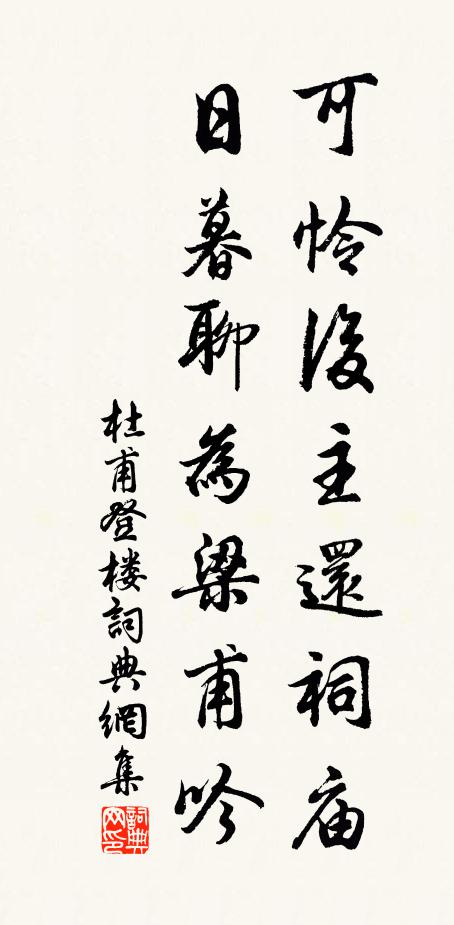 可怜後主還祠庙
日暮聊為梁甫吟
杜甫登楼詞典網集
詞典网印